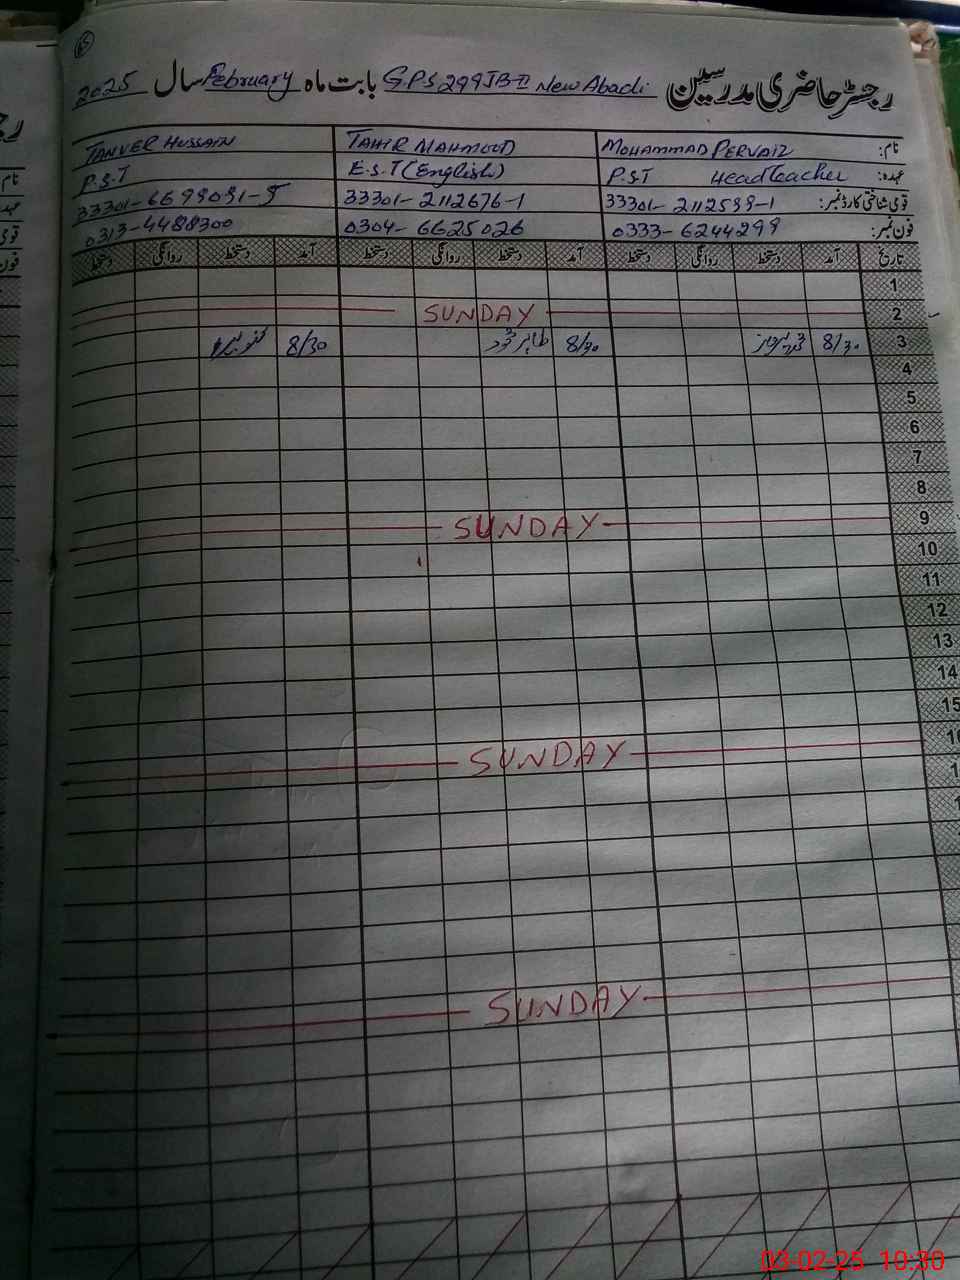 65
رجسٹر حاضری مدرسین GPS 299JB-II New Abadi بابت ماہ February سال 2025
نام: MOHAMMAD PERVAIZ TAHIR MAHMOOD TANVER HUSSAIN
عہدہ: P.S.T Headteacher E.S.T (English) P.S.T
قومی شناختی کارڈ نمبر: 33301-2112599-1 33301-2112676-1 33301-6699031-5
فون نمبر: 0333-6244299 0304-6625026 0313-4488300
تاریخ آمد دستخط روانگی دستخط آمد دستخط روانگی دستخط آمد دستخط روانگی دستخط
1
2 SUNDAY
3 8/30 8/30 طاہر محمود 8/30
4
5
6
7
8
9 SUNDAY
10
11
12
13
14
15
SUNDAY
SUNDAY
03-02-25 10:30